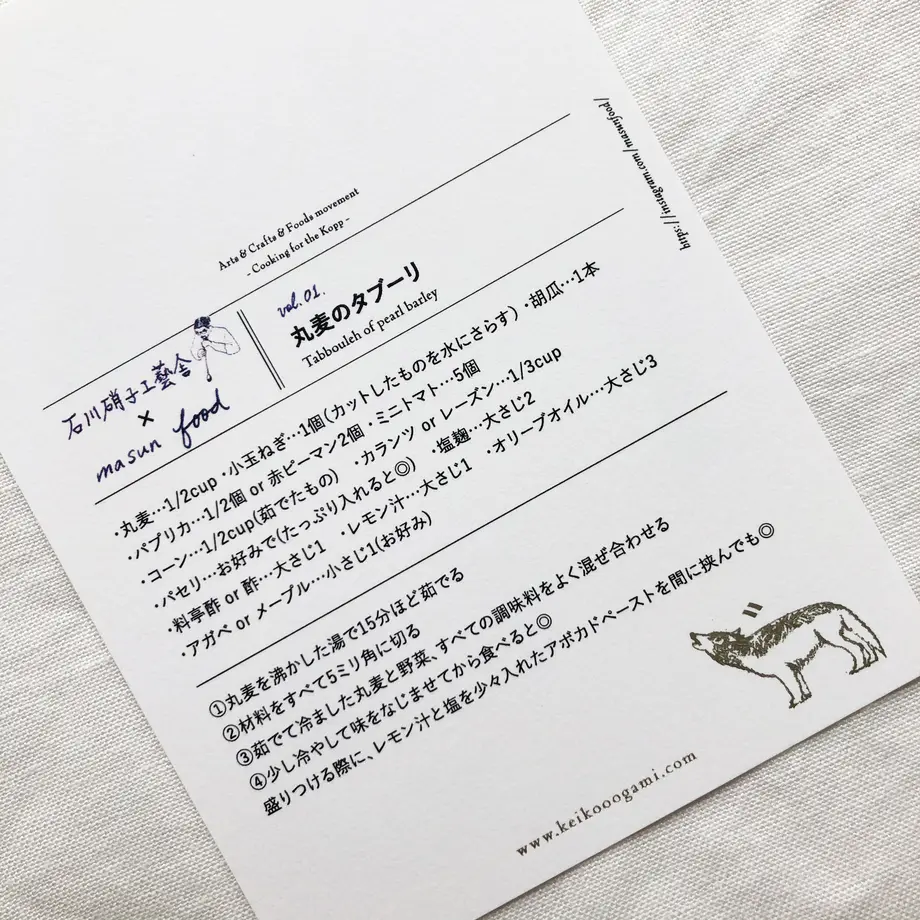 https://instagram.com/masunfood/
Arts & Crafts & Foods movement
- Cooking for the Kopp -
石川硝子工藝舎
×
masun food
vol.01.
丸麦のタブーリ
Tabbouleh of pearl barley
・丸麦…1/2cup ・小玉ねぎ…1個(カットしたものを水にさらす) ・胡瓜…1本
・パプリカ…1/2個 or 赤ピーマン2個 ・ミニトマト…5個
・コーン…1/2cup(茹でたもの) ・カランツ or レーズン…1/3cup
・パセリ…お好みで(たっぷり入れると◎) ・塩麹…大さじ2
・料亭酢 or 酢…大さじ1 ・レモン汁…大さじ1 ・オリーブオイル…大さじ3
・アガベ or メープル…小さじ1(お好み)
①丸麦を沸かした湯で15分ほど茹でる
②材料をすべて5ミリ角に切る
③茹でて冷ました丸麦と野菜、すべての調味料をよく混ぜ合わせる
④少し冷やして味をなじませてから食べると◎
盛りつける際に、レモン汁と塩を少々入れたアボカドペーストを間に挟んでも◎
www.keikooogami.com